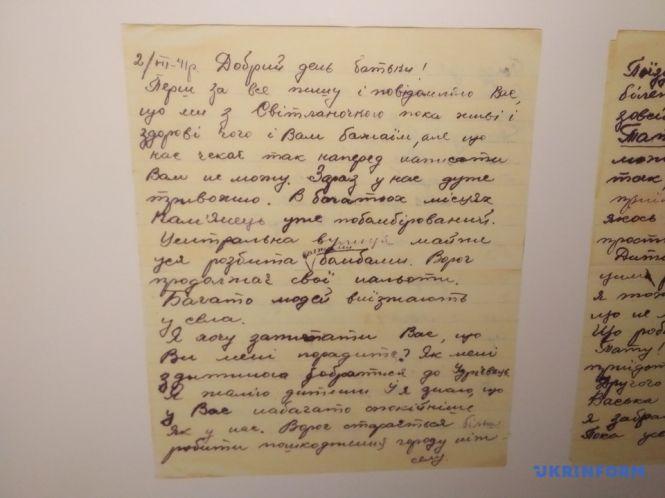 2/VII-41р. Добрий день батьки!
Перш за все пишу і повідомляю Вас,
що ми з Світланочкою пока живі і
здорові чого і Вам бажаїм, але що
нас чекає так наперед написати
Вам не можу. Зараз у нас дуже
тривожно. В багатьох місцях
Кам'янець уже побамбірований.
Центральна вулиця майже
уся розбита бомбами. Ворог
продолжає свої нальоти.
Багато людей виїзжають
у села.
Я хочу запитати Вас, що
Ви мені порадите? Як мені
з дитиною добратися до
Я жалію дитини і я знаю, що
у Вас набагато спокійніше
як у нас. Ворог старається більш
робити пошкодження городу ніж
селу.
Поїзд
більш
зовсі
Тату
можи
так
приїд
якось
прост
Дити
цим
я тож
що не м
Що роби
Тату!
приїдот
Другого
Васька
я забра
Пока ус
UKRINFORM